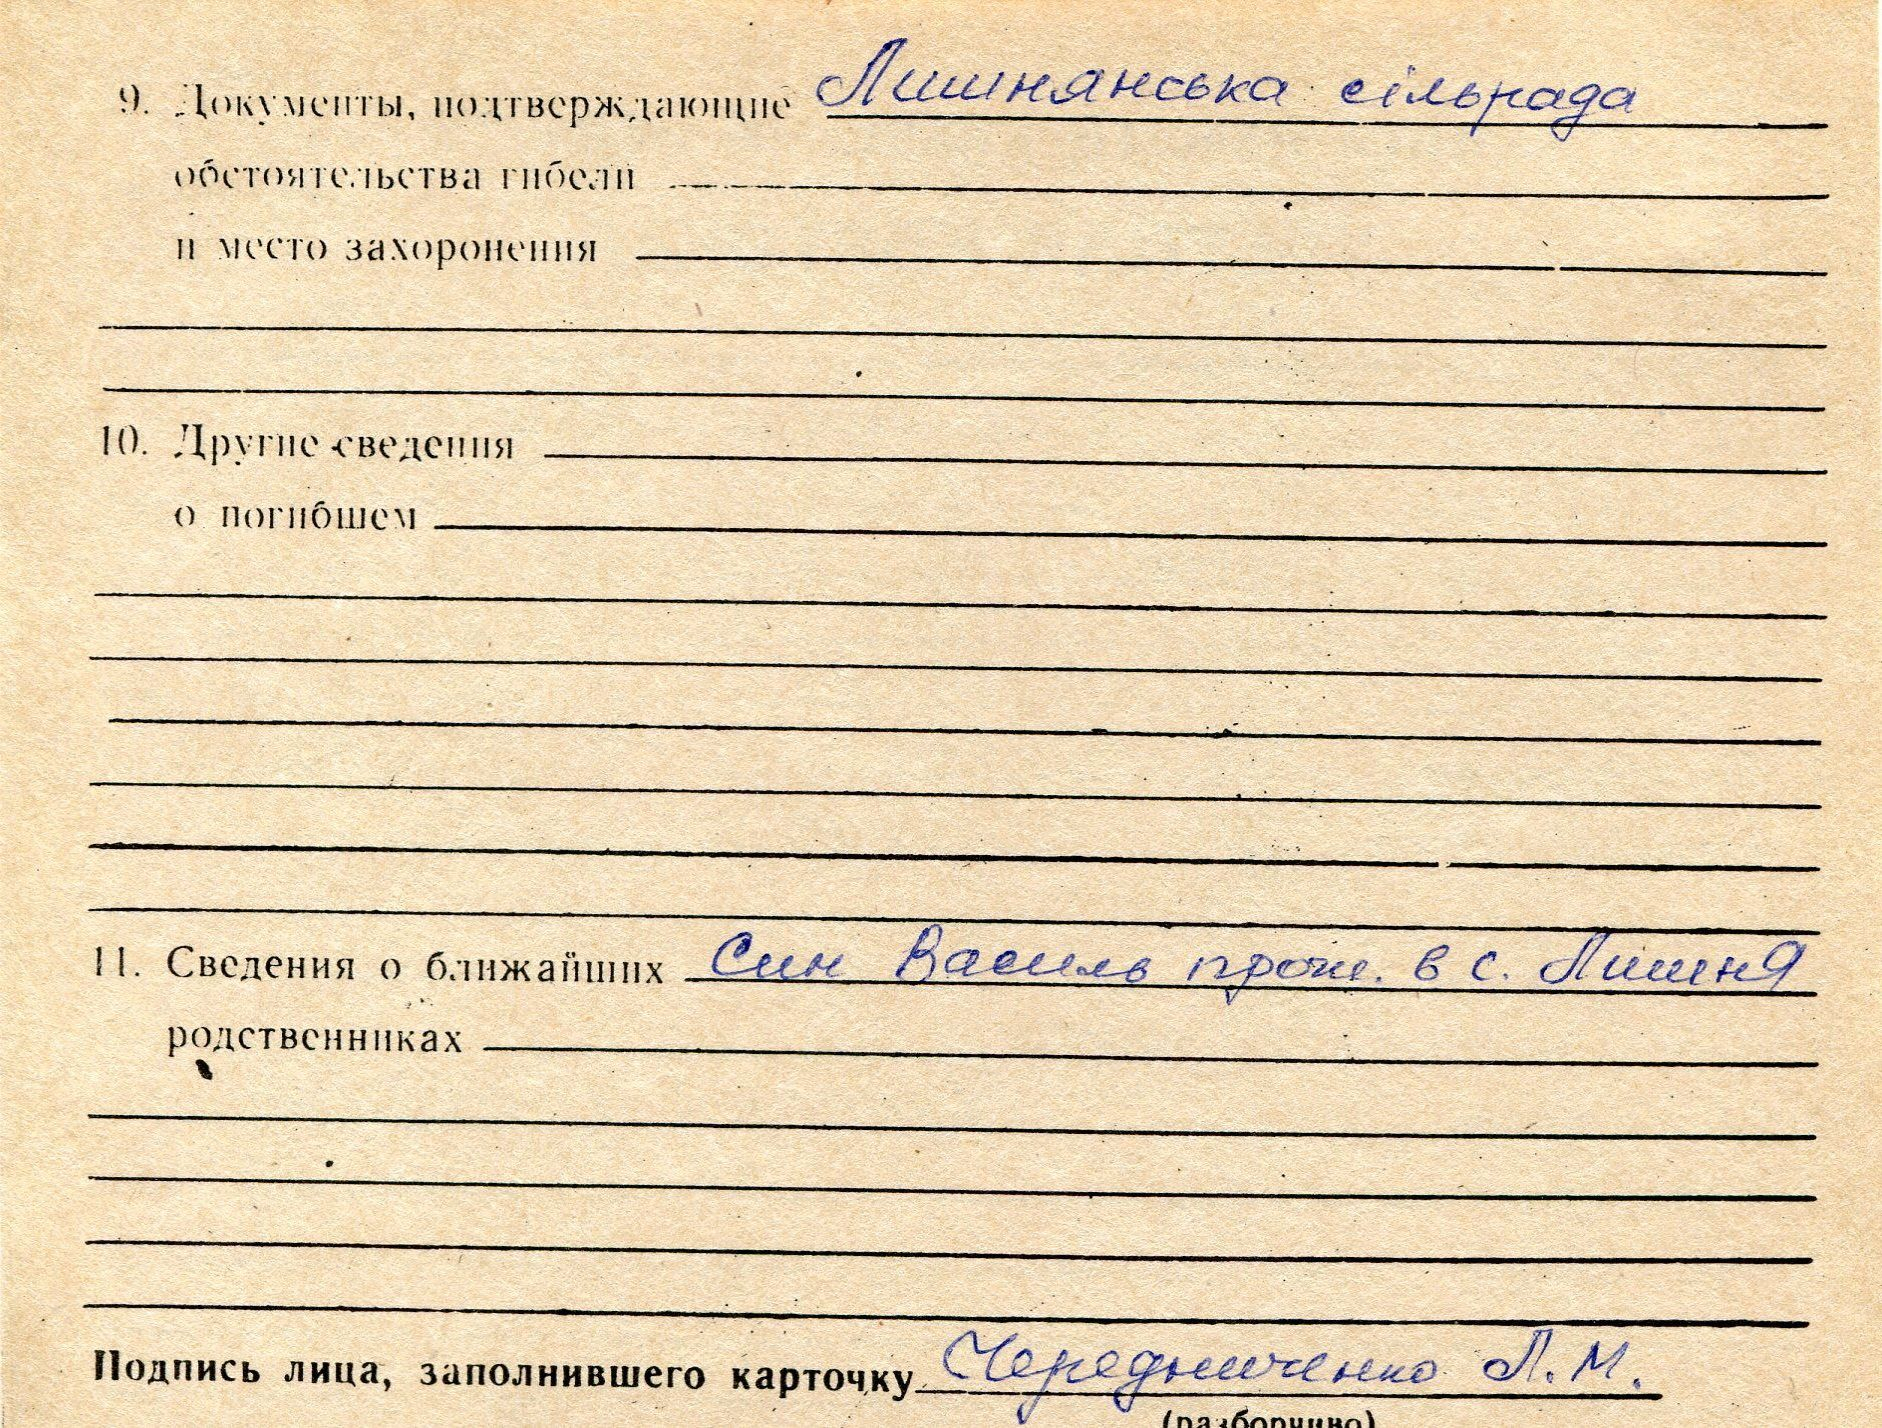 9. Документы, подтверждающие Лишнянська сільрада
обстоятельства гибели
и место захоронения
10. Другие сведения
о погибшем
11. Сведения о ближайших Син Василь прож. в с. Лишня
родственниках
Подпись лица, заполнившего карточку Чередниченко Л. М.
(разборчиво)